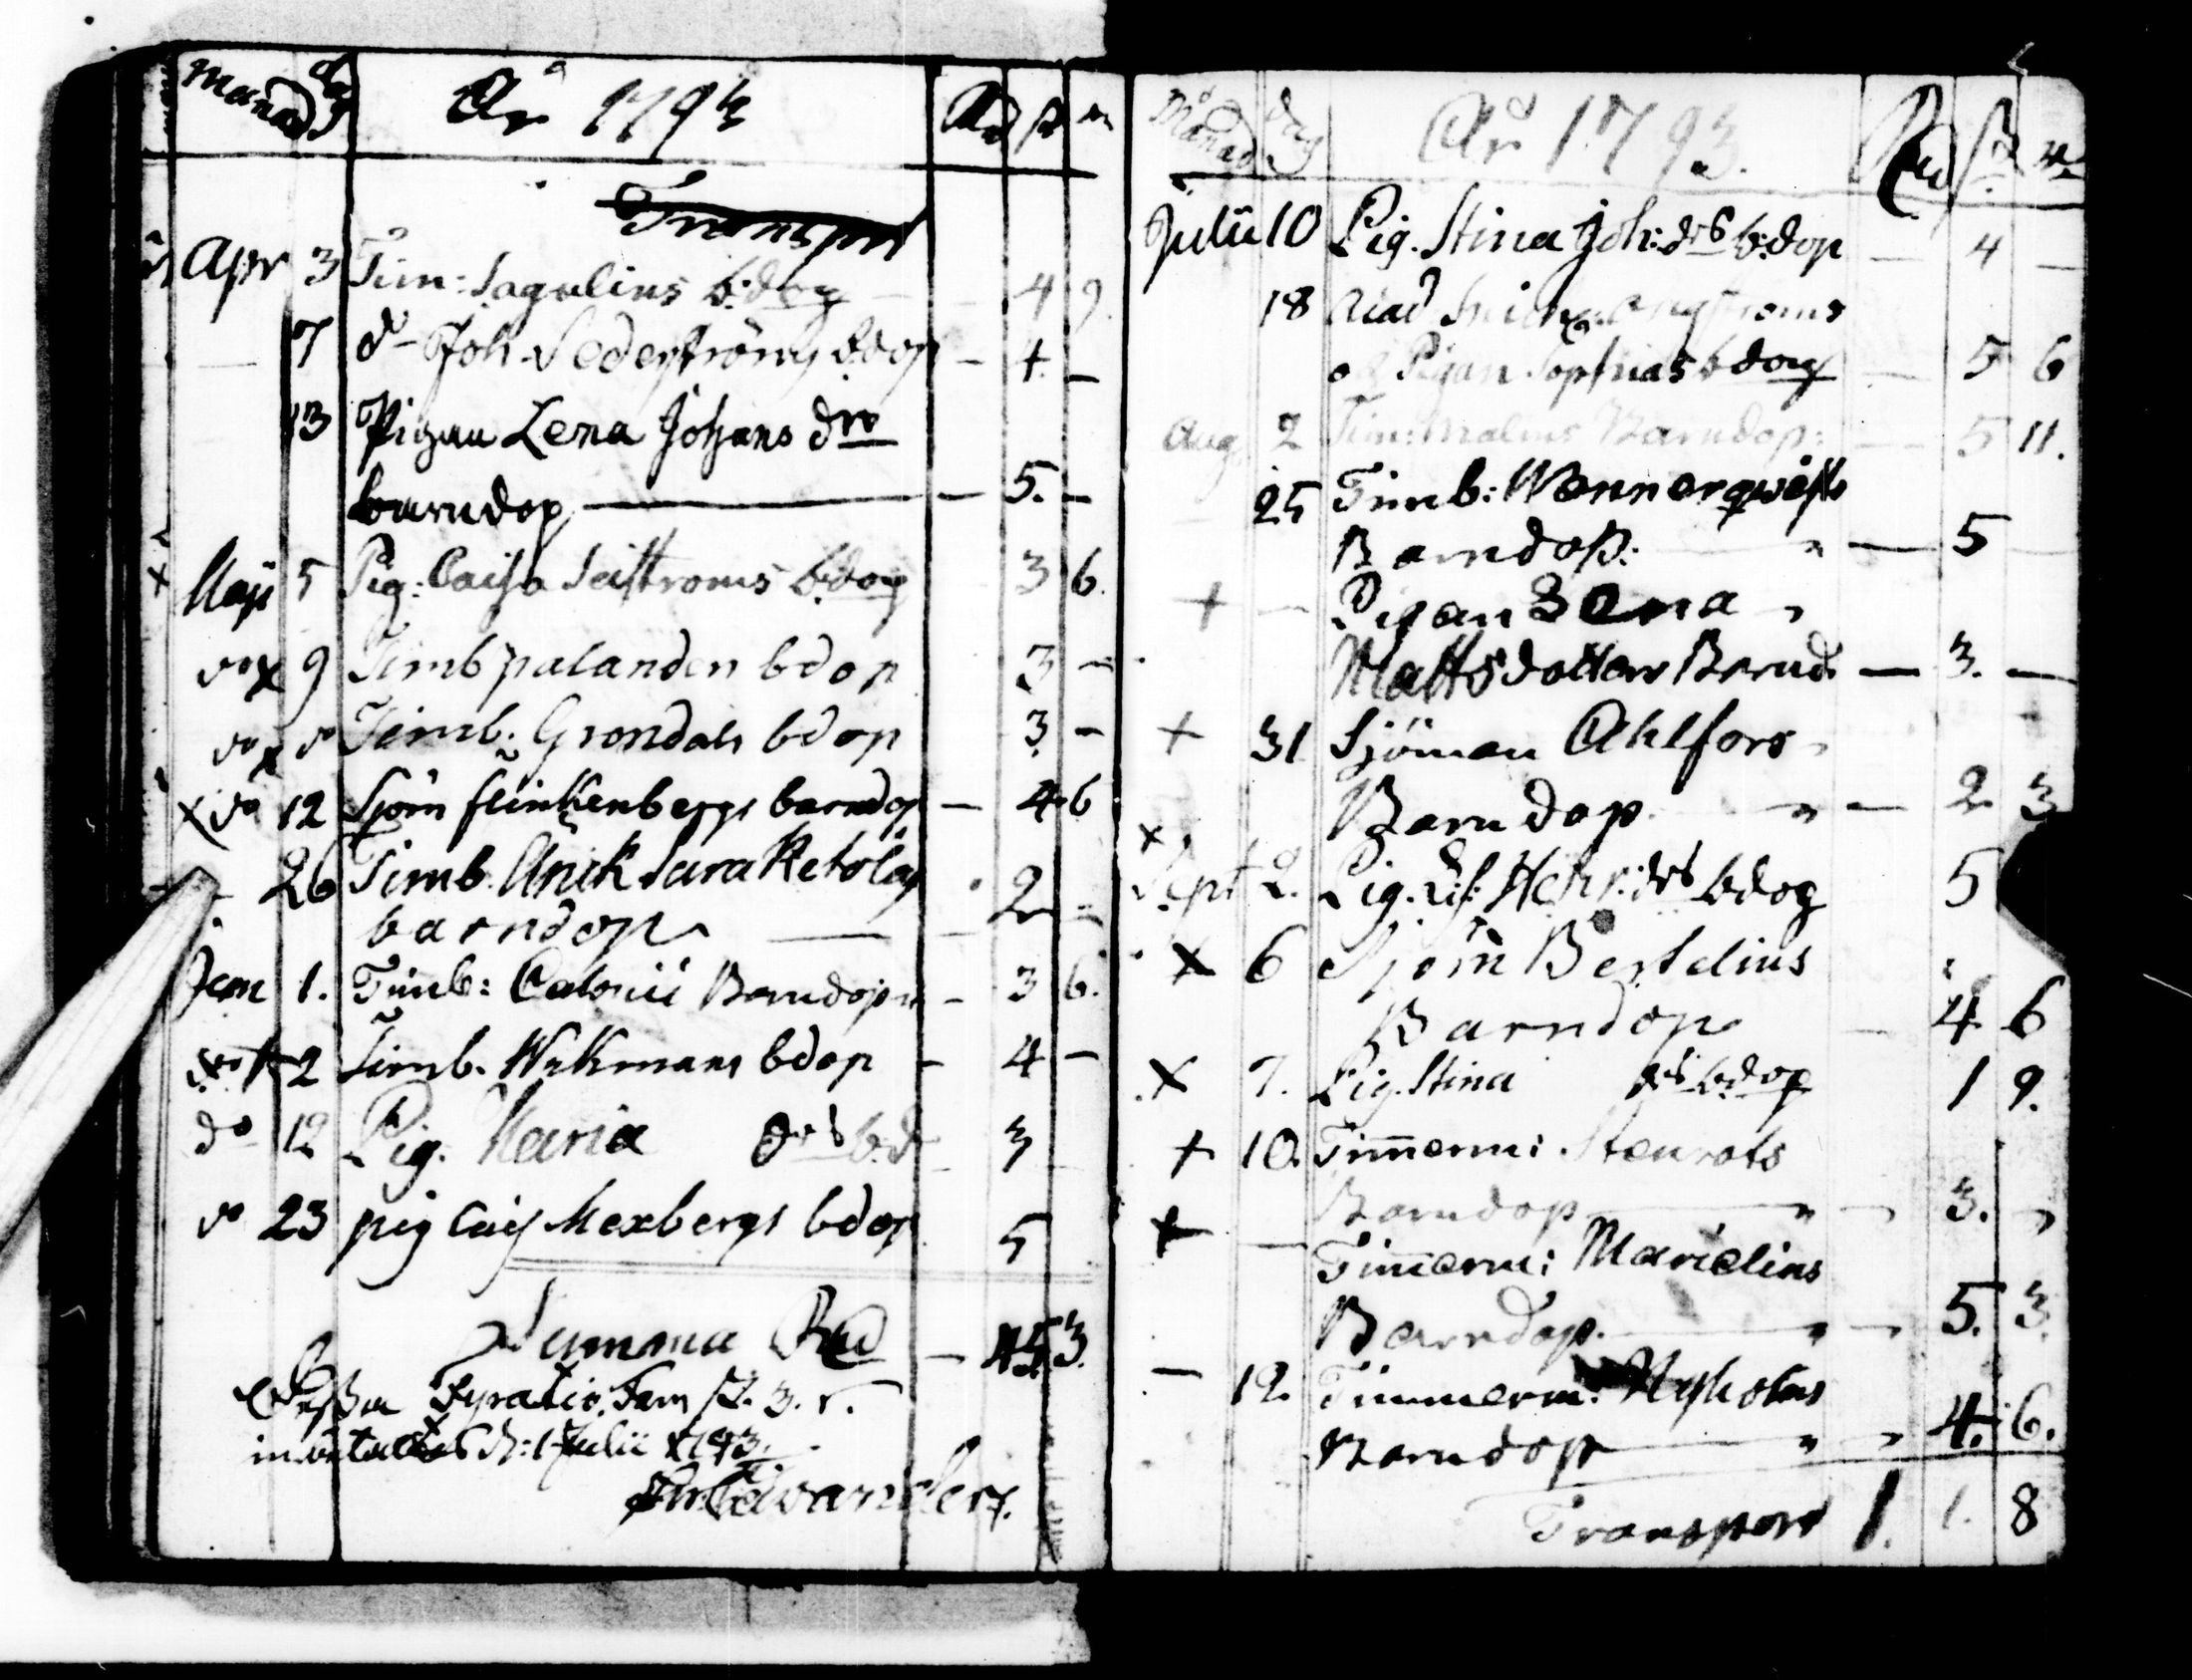 Månad dag År 1793 Rd ß r
Transport
Apr 3 Tim: Sagulius b:dop 4 9
7 do Joh Sederströms bdop - 4. -
13 Pigan Lena Johans drs
barndop - 5. -
Maji 5 Pig: Caisa Seistroms b:dop 3 6.
do x 9 Timb palanden bdop 3 -
do x do Timb. Grondals bdop 3 -
x do 12 Sjöm flinkenbergs barndop - 4 6
26 Timb. Anik Sara Ketolas
barndop 2 -
Juni 1. Timb: Calonii Barndop - 3 6.
do x 2 Timb. Wikmans bdop - 4 -
do 12 Pig. Maria drs b:d 3
do 23 pig Cais Mexbergs bdop 5
Summa Rd - 45 3.
Fyratio Fem ß. 3. r.
d: 1 Julii 1793.
Månad dag År 1793. Rd ß r
Julii 10 Pig. Stina Joh: drs b:dop - 4 -
18
o Pigan Sophias bdop - 5 6
Aug. 2 Tim: Malms Barndop: - 5 11.
25 Timb: Wennerqwists
Barndop: - 5
+ - Pigan Lena
Matts dotters Barnd. - 3. -
+ 31 Sjöman Ahlfors
Barndop. " - 2 3
x Sept 2. Pig. Lis: Henr: drs bdop 5
x 6 Sjöm Bertelius
Barndop - 4 6
x 7. Pig. Stina drs b:dop 1 9.
+ 10. Timerm: Stenrots
Barndop " - 3. -
+ - Timerm: Marielius
Barndop. " - 5. 3.
- 12. Timmerm: Nyholms
Barndop " - 4. 6.
Transport 1. 1. 8